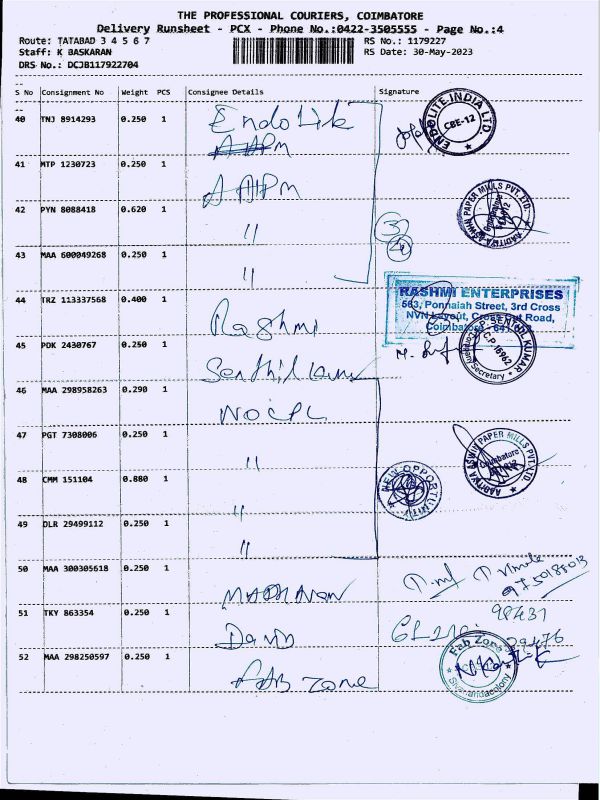 THE PROFESSIONAL COURIERS, COIMBATORE
Delivery Runsheet - PCX - Phone No.:0422-3505555 - Page No.:4
Route: TATABAD 3 4 5 6 7
RS No.: 1179227
Staff: K BASKARAN
RS Date: 30-May-2023
DRS No.: DCJB117922704
S No Consignment No Weight PCS Consignee Details Signature
40 TNJ 8914293 0.250 1 Endolite
ENDOLITE INDIA LTD
CBE-12
41 MTP 1230723 0.250 1 AAPM
42 PYN 8088418 0.620 1 "
AADITYA ASWIN PAPER MILLS PVT. LTD.
3
43 MAA 600049268 0.250 1 "
44 TRZ 113337568 0.400 1 Rashmi
RASHMI ENTERPRISES
563, Ponnaiah Street, 3rd Cross
NVN Layout, Cross Cut Road,
Coimbatore - 641 012
45 PDK 2430767 0.250 1
SENTHIL KUMAR
C.P. 16962
Company Secretary
46 MAA 298958263 0.290 1
47 PGT 7308006 0.250 1 "
AADITYA ASWIN PAPER MILLS PVT. LTD.
Coimbatore
48 CMM 151104 0.880 1 "
NEW OPPORTUNITY
49 DLR 29499112 0.250 1 "
50 MAA 300305618 0.250 1
51 TKY 863354 0.250 1
98431
29476
52 MAA 298250597 0.250 1 FAB Zone
Fab Zone